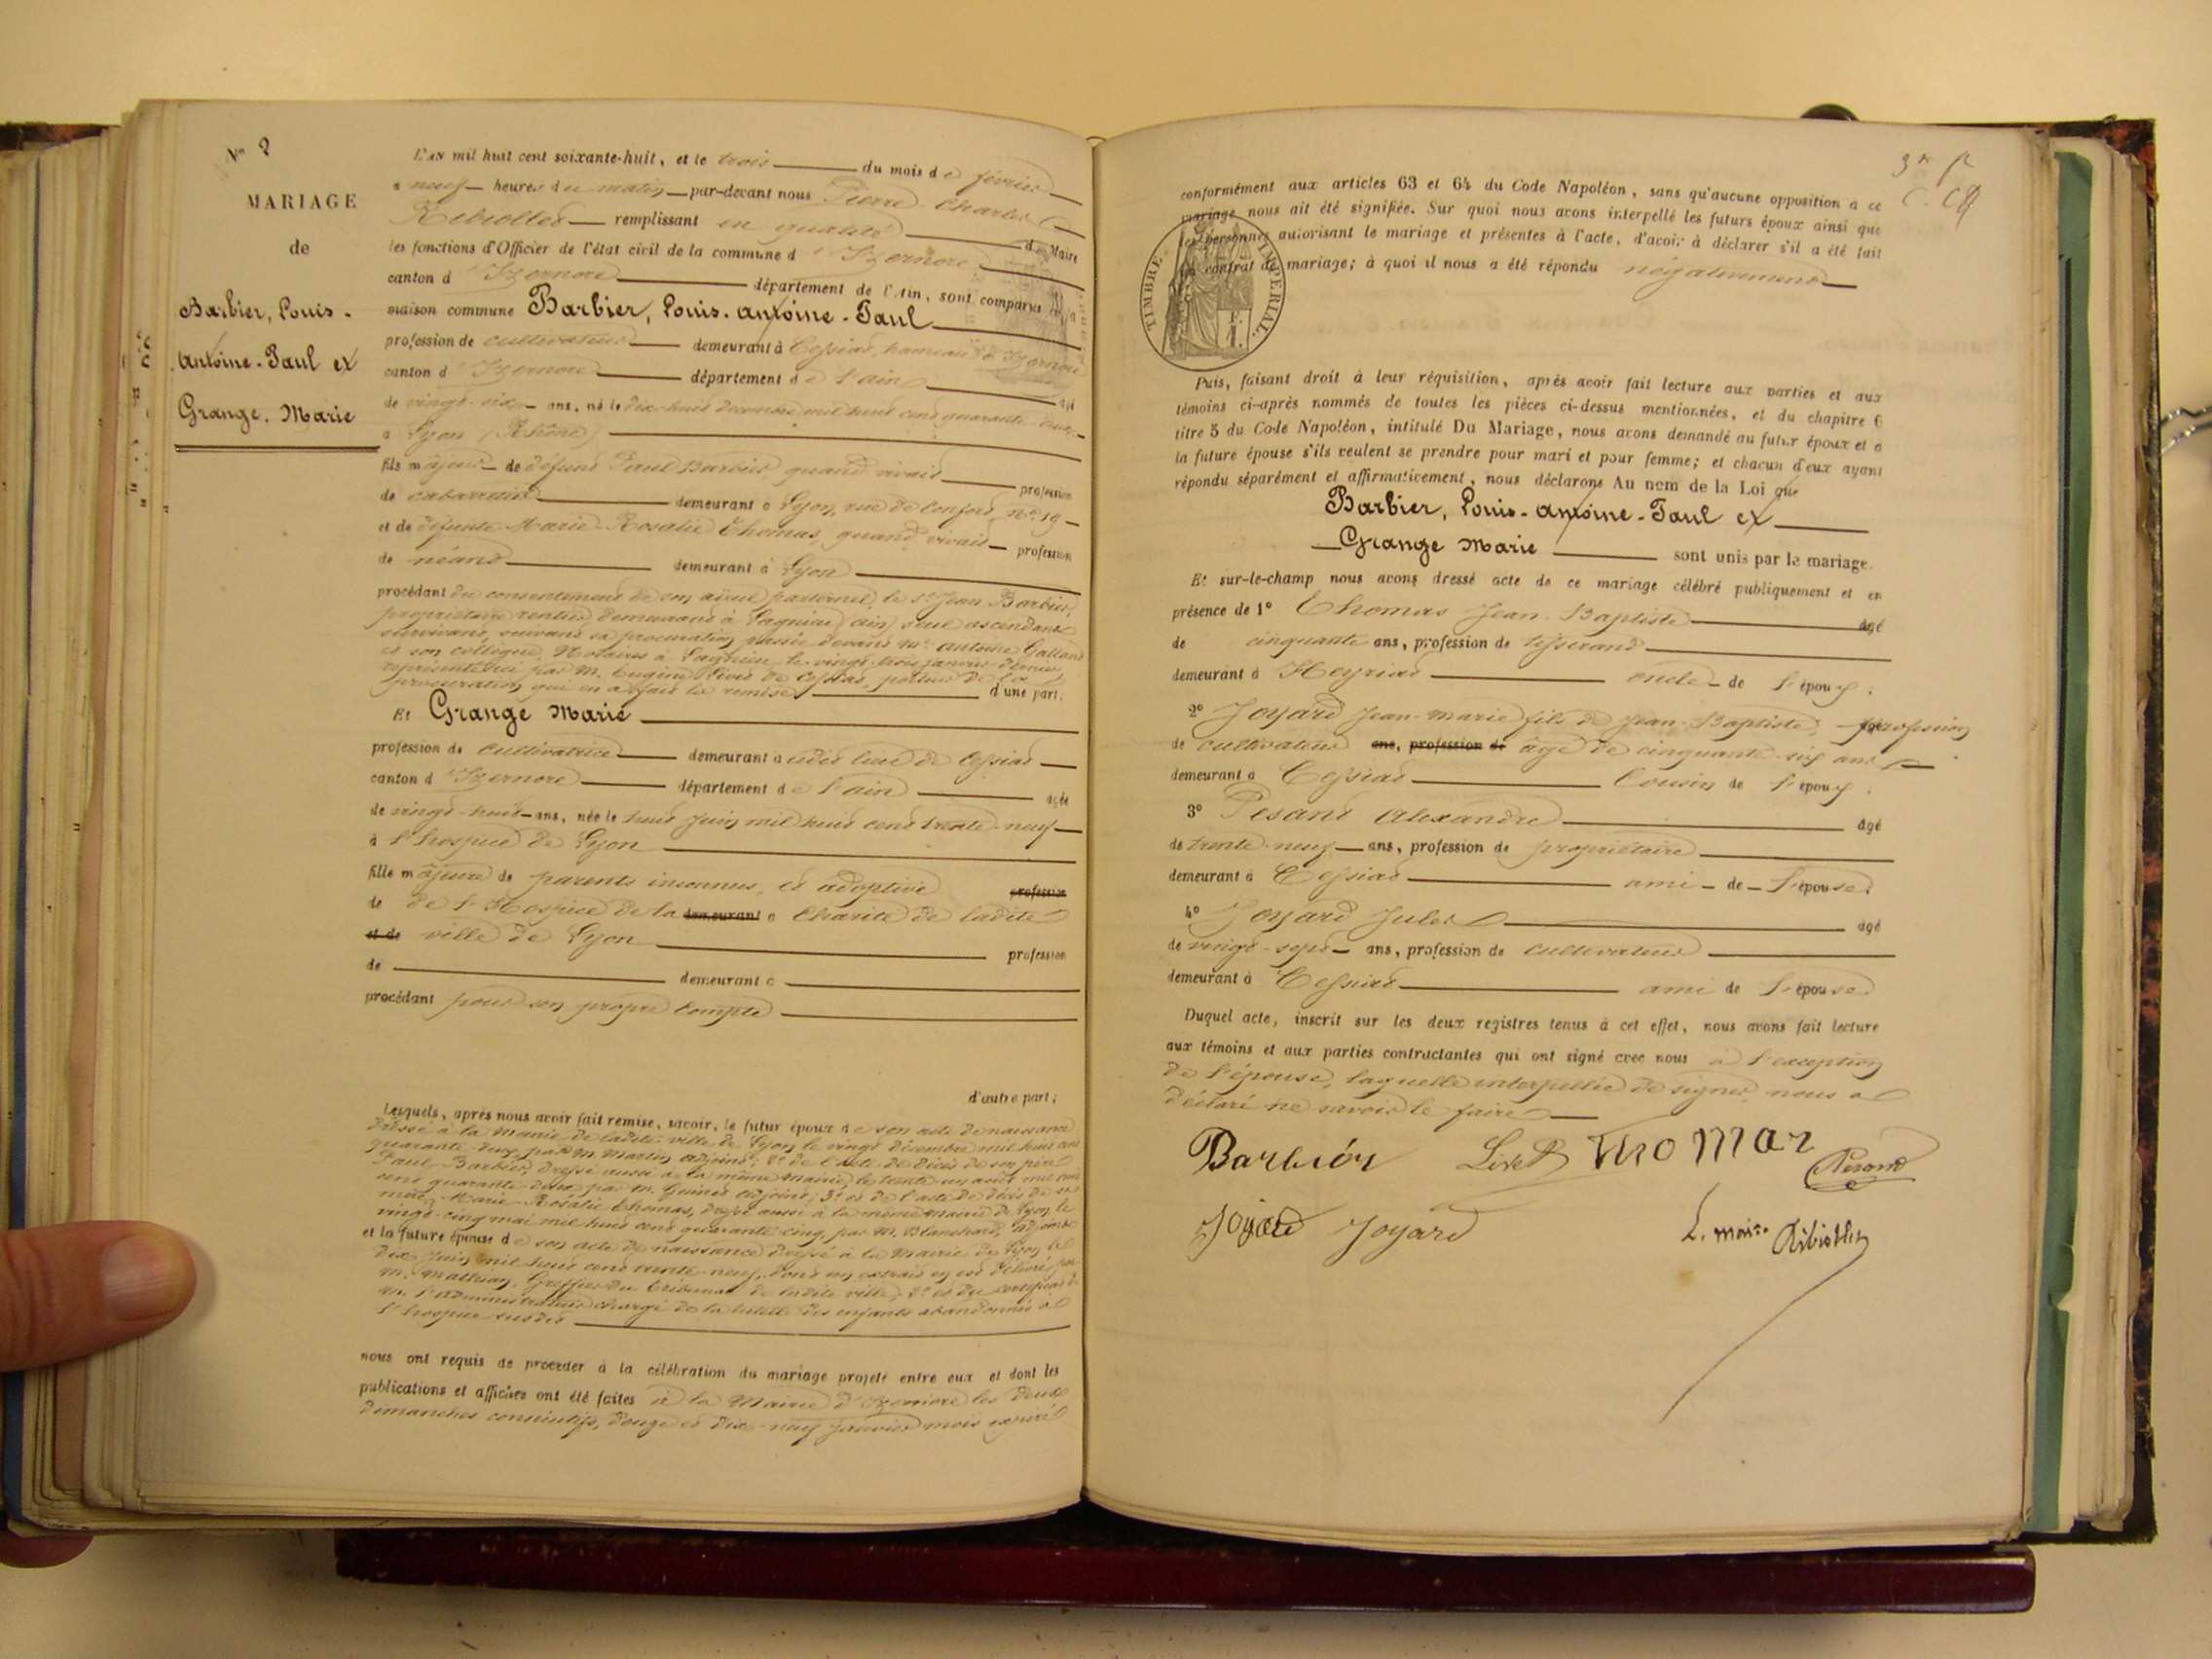 N° 2
MARIAGE
de
Barbier, Louis-
Antoine-Paul et
Grange. Marie
L'AN mil huit cent soixante-huit, et le trois du mois de février
a neuf heures du matin par-devant nous Pierre Charles
Ribiollet remplissant en qualité de Maire
les fonctions d'Officier de l'état civil de la commune d'Izernore
canton d'Izernore département de l'Ain, sont comparus en la
maison commune Barbier, Louis-Antoine-Paul
profession de cultivateur demeurant à Cessiat, hameau d'Izernore
canton d'Izernore département de l'ain agé
de vingt-six ans, né le dix-huit décembre mil huit cent quarante
à Lyon (Rhône)
fils majeur de défunt Paul Barbier quand vivait profession
de cabaretier demeurant a Lyon, rue de Confort, N° 19
et de défunte Marie-Rosalie Thomas, quand vivait profession
de néant demeurant à Lyon
procédant du consentement de son aïeul paternel, le sr Jean Barbier,
propriétaire rentier demeurant à Lagnieu (ain) seul ascendant
survivant, suivant sa procuration passée devant Me Antoine Galland
et son collègue, Notaires à Lagnieu, le vingt-trois janvier dernier
représenté ici par M. Eugène Livet de Cessiat, porteur de la
procuration, qui en a fait la remise d'une part.
Et Grange Marie
profession de cultivatrice demeurant audit lieu de Cessiat
canton d'Izernore département de l'ain agée
de vingt-huit ans, née le huit Juin mil huit cent trente-neuf
à l'hospice de Lyon
fille majeure de parents inconnus, et adoptive profession
de de l'Hospice de la demeurant a Charité de ladite
et de ville de Lyon profession
de demeurant a
procédant pour son propre compte
d'autre part;
Lesquels, après nous avoir fait remise, savoir, le futur époux de son acte de naissance
dressé à la Mairie de ladite ville de Lyon le vingt décembre mil huit cent
quarante par M. Martin adjoint; 2° de l'acte de décès de son père
Paul Barbier, dressé aussi à la même mairie, le trente-un août mil huit
cent quarante deux par M. adjoint; 3° et de l'acte de décès de sa
mère, Marie-Rosalie Thomas, dressé aussi à la même mairie de Lyon le
vingt-cinq mai mil huit cent quarante cinq, par M. Blanchard, adjoint
et la future épouse de son acte de naissance dressé à la Mairie de Lyon le
dix Juin mil huit cent trente-neuf, dont un extrait en est délivré par
M. Greffier du Tribunal de ladite ville; 2° et du certificat de
M. l'administrateur chargé de la tutelle des enfants abandonnés à
l'hospice susdit
nous ont requis de procéder à la célébration du mariage projeté entre eux et dont les
publications et affiches ont été faites à la Mairie d'Izernore les deux
dimanches consécutifs, douze et dix-neuf janvier mois expiré
conformément aux articles 63 et 64 du Code Napoléon, sans qu'aucune opposition a ce
mariage nous ait été signifiée. Sur quoi nous avons interpellé les futurs époux ainsi que
les personnes autorisant le mariage et présentes à l'acte, d'avoir à déclarer s'il a été fait
un contrat de mariage; à quoi il nous a été répondu négativement
TIMBRE IMPERIAL.
F.
1.
Puis, faisant droit à leur réquisition, après avoir fait lecture aux parties et aux
témoins ci-après nommés de toutes les pièces ci-dessus mentionnées, et du chapitre 6
titre 5 du Code Napoléon, intitulé Du Mariage, nous avons demandé au futur époux et a
la future épouse s'ils veulent se prendre pour mari et pour femme; et chacun d'eux ayant
répondu séparément et affirmativement, nous déclarons Au nom de la Loi que
Barbier, Louis-Antoine-Paul et
Grange Marie sont unis par le mariage.
Et sur-le-champ nous avons dressé acte de ce mariage célébré publiquement et en
présence de 1° Thomas Jean-Baptiste agé
de cinquante ans, profession de tisserand
demeurant à Heyriat oncle de l'époux.
2° Joyard Jean-marie fils de Jean-Baptiste, profession
de cultivateur ans, profession de âgé de cinquante-six ans
demeurant a Cessiat Cousin de l'époux.
3° Pesant Alexandre agé
de trente-neuf ans, profession de propriétaire
demeurant à Cessiat ami de l'épouse.
4° Joyard Jules agé
de vingt-sept ans, profession de cultivateur
demeurant à Cessiat ami de l'épouse
Duquel acte, inscrit sur les deux registres tenus à cet effet, nous avons fait lecture
aux témoins et aux parties contractantes qui ont signé avec nous à l'exception
de l'épouse, laquelle interpellée de signer nous a
déclaré ne savoir le faire
Barbier Livet Thomas Pesant
Joyard Joyard
L. maire Ribiollet